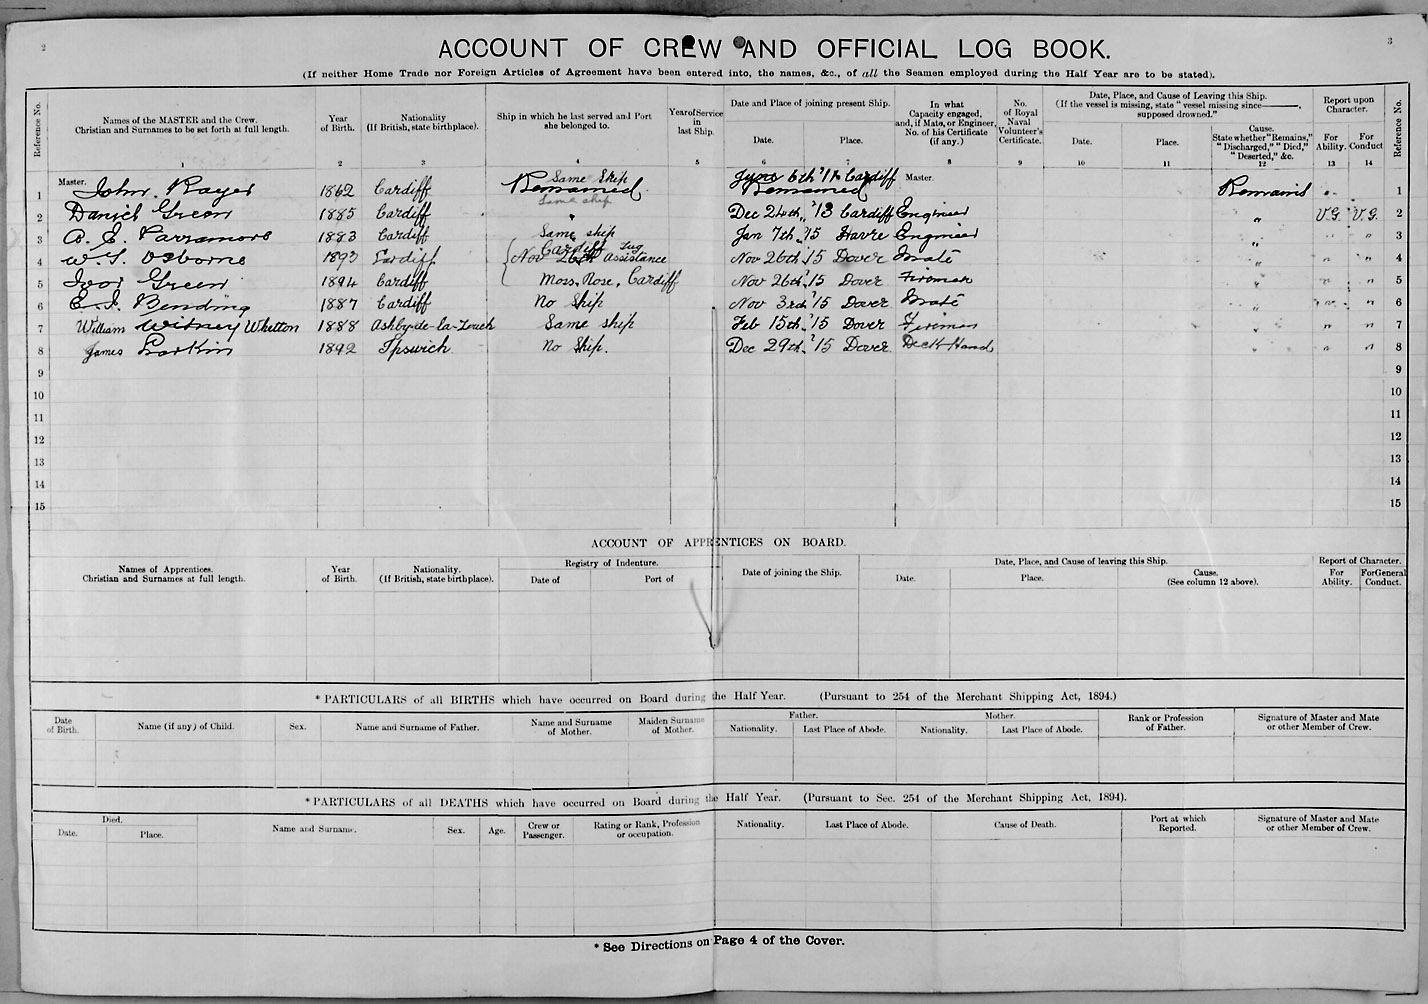 2
3
ACCOUNT OF CREW AND OFFICIAL LOG BOOK.
(If neither Home Trade nor Foreign Articles of Agreement have been entered into, the names, &c., of all the Seamen employed during the Half Year are to be stated).
Reference No. Names of the MASTER and the Crew. Christian and Surnames to be set forth at full length. Year of Birth. Nationality (If British, state birthplace). Ship in which he last served and Port she belonged to. Year of Service in last Ship. Date and Place of joining present Ship. Date. Place. In what Capacity engaged, and, if Mate, or Engineer, No. of his Certificate (if any). No. of Royal Naval Volunteer's Certificate. Date, Place, and Cause of Leaving this Ship. (If the vessel is missing, state "vessel missing since——, supposed drowned." Date. Place. Cause. State whether "Remains," "Discharged," "Died," "Deserted," &c. Report upon Character. For Ability. For Conduct Reference No.
1 2 3 4 5 6 7 8 9 10 11 12 13 14
Same Ship
1 Master. John Rayer 1862 Cardiff Remained 6th Cardiff Remained Master. Remains 1
Same ship
2 Daniel Green 1885 Cardiff " Dec 24th '13 Cardiff Engineer " V.G. V.G. 2
3 A. E. Parramore 1883 Cardiff Same ship Jan 7th '15 Havre Engineer " " " 3
Cardiff Tug
4 W. Osborne 1893 Cardiff Nov 26th Assistance Nov 26th '15 Dover Mate " " " 4
5 Ivor Green 1894 Cardiff Moss, Rose, Cardiff Nov 26th '15 Dover Fireman " " " 5
6 Bending 1887 Cardiff No Ship Nov 3rd '15 Dover Mate " " " 6
7 William Witney Whetton 1888 Ashby-de-la-Zouch Same ship Feb 15th '15 Dover Fireman " " " 7
8 James Larkin 1892 Ipswich No Ship. Dec 29th '15 Dover Deck Hand " " " 8
9 9
10 10
11 11
12 12
13 13
14 14
15 15
ACCOUNT OF APPRENTICES ON BOARD.
Names of Apprentices. Christian and Surnames at full length. Year of Birth. Nationality. (If British, state birthplace). Registry of Indenture. Date of Port of Date of joining the Ship. Date, Place, and Cause of leaving this Ship. Date. Place. Cause. (See column 12 above). Report of Character. For Ability. For General Conduct.
* PARTICULARS of all BIRTHS which have occurred on Board during the Half Year. (Pursuant to 254 of the Merchant Shipping Act, 1894.)
Date of Birth. Name (if any) of Child. Sex. Name and Surname of Father. Name and Surname of Mother. Maiden Surname of Mother. Father. Nationality. Last Place of Abode. Mother. Nationality. Last Place of Abode. Rank or Profession of Father. Signature of Master and Mate or other Member of Crew.
* PARTICULARS of all DEATHS which have occurred on Board during the Half Year. (Pursuant to Sec. 254 of the Merchant Shipping Act, 1894).
Died. Date. Place. Name and Surname. Sex. Age. Crew or Passenger. Rating or Rank, Profession or occupation. Nationality. Last Place of Abode. Cause of Death. Port at which Reported. Signature of Master and Mate or other Member of Crew.
* See Directions on Page 4 of the Cover.